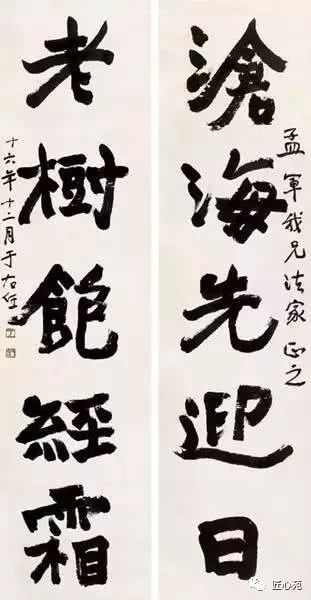 孟軍我兄法家正之
滄海先迎日
老樹飽經霜
十六年十二月于右任
匠心苑